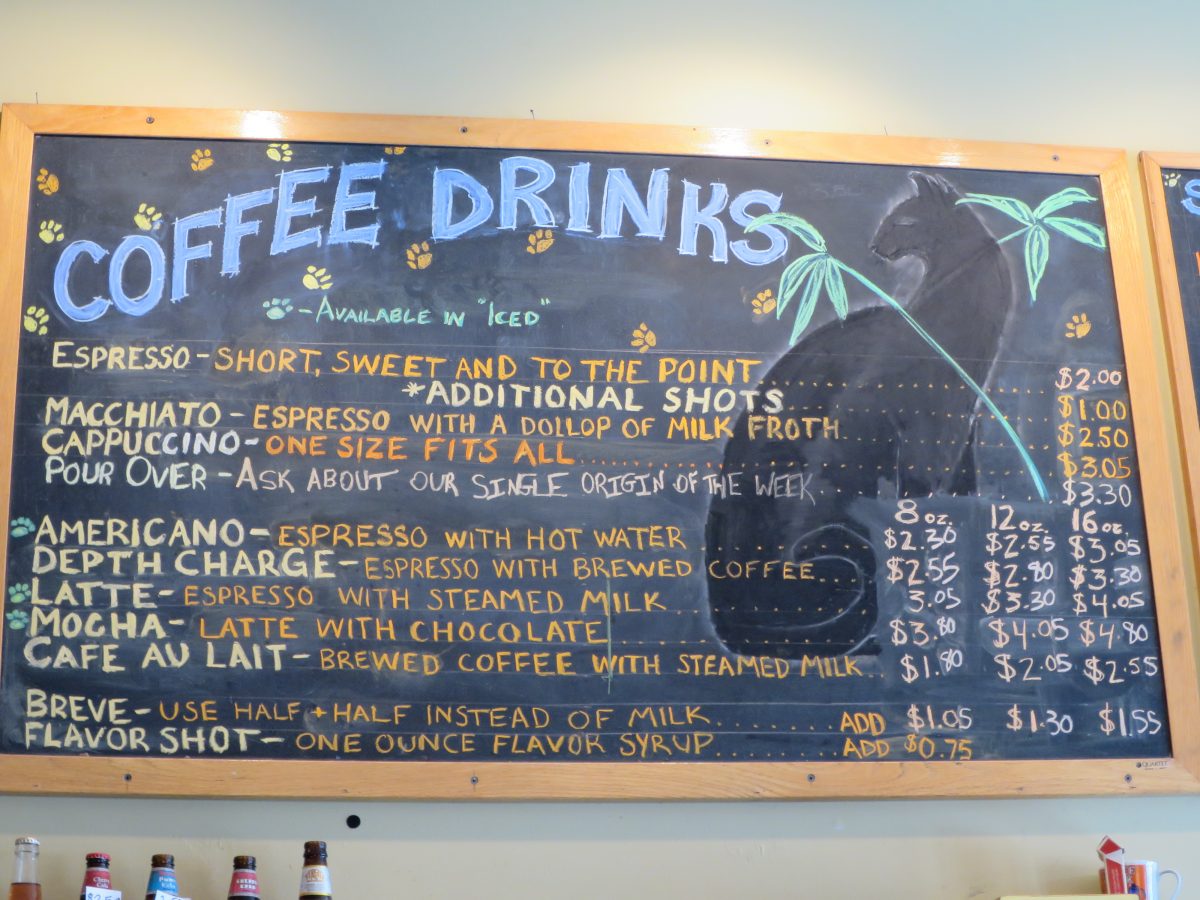 COFFEE DRINKS
- AVAILABLE IN "ICED"
ESPRESSO - SHORT, SWEET AND TO THE POINT $2.00
*ADDITIONAL SHOTS $1.00
MACCHIATO - ESPRESSO WITH A DOLLOP OF MILK FROTH $2.50
CAPPUCCINO - ONE SIZE FITS ALL $3.05
POUR OVER - ASK ABOUT OUR SINGLE ORIGIN OF THE WEEK $3.30
8 oz. 12 oz. 16 oz.
AMERICANO - ESPRESSO WITH HOT WATER $2.30 $2.55 $3.05
DEPTH CHARGE - ESPRESSO WITH BREWED COFFEE $2.55 $2.80 $3.30
LATTE - ESPRESSO WITH STEAMED MILK 3.05 $3.30 $4.05
MOCHA - LATTE WITH CHOCOLATE $3.80 $4.05 $4.80
CAFE AU LAIT - BREWED COFFEE WITH STEAMED MILK $1.80 $2.05 $2.55
BREVE - USE HALF + HALF INSTEAD OF MILK ADD $1.05 $1.30 $1.55
FLAVOR SHOT - ONE OUNCE FLAVOR SYRUP ADD $0.75
QUARTET